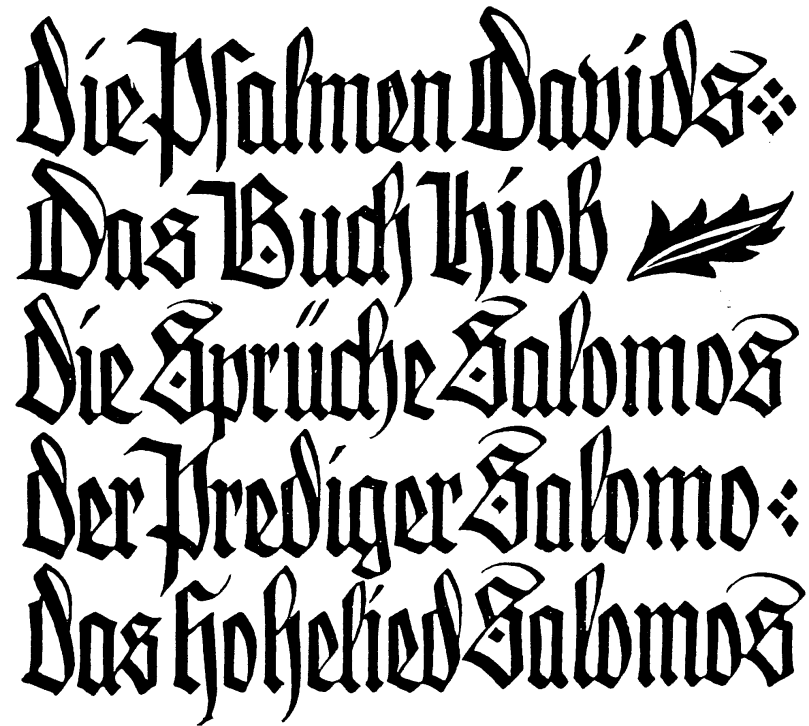 die Pſalmen Davids
Das Buch Hiob
die Sprüche Salomos
der Prediger Salomo
das Hohelied Salomos